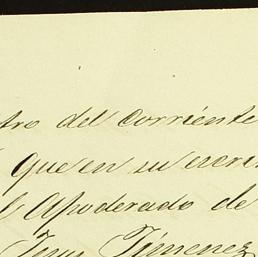 tro del corriente
que en su escri
el Apoderado de
Jesus Jimenez